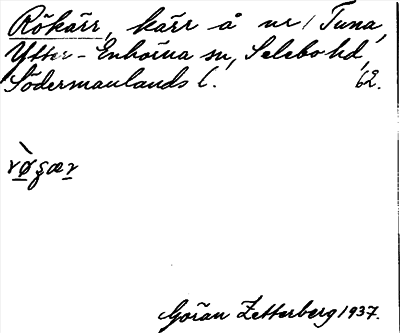 Rökärr, kärr å nr 1 Tuna,
Ytter-Enhörna sn, Selebo hd,
Södermanlands l. 62.
Göran Zetterberg 1937.